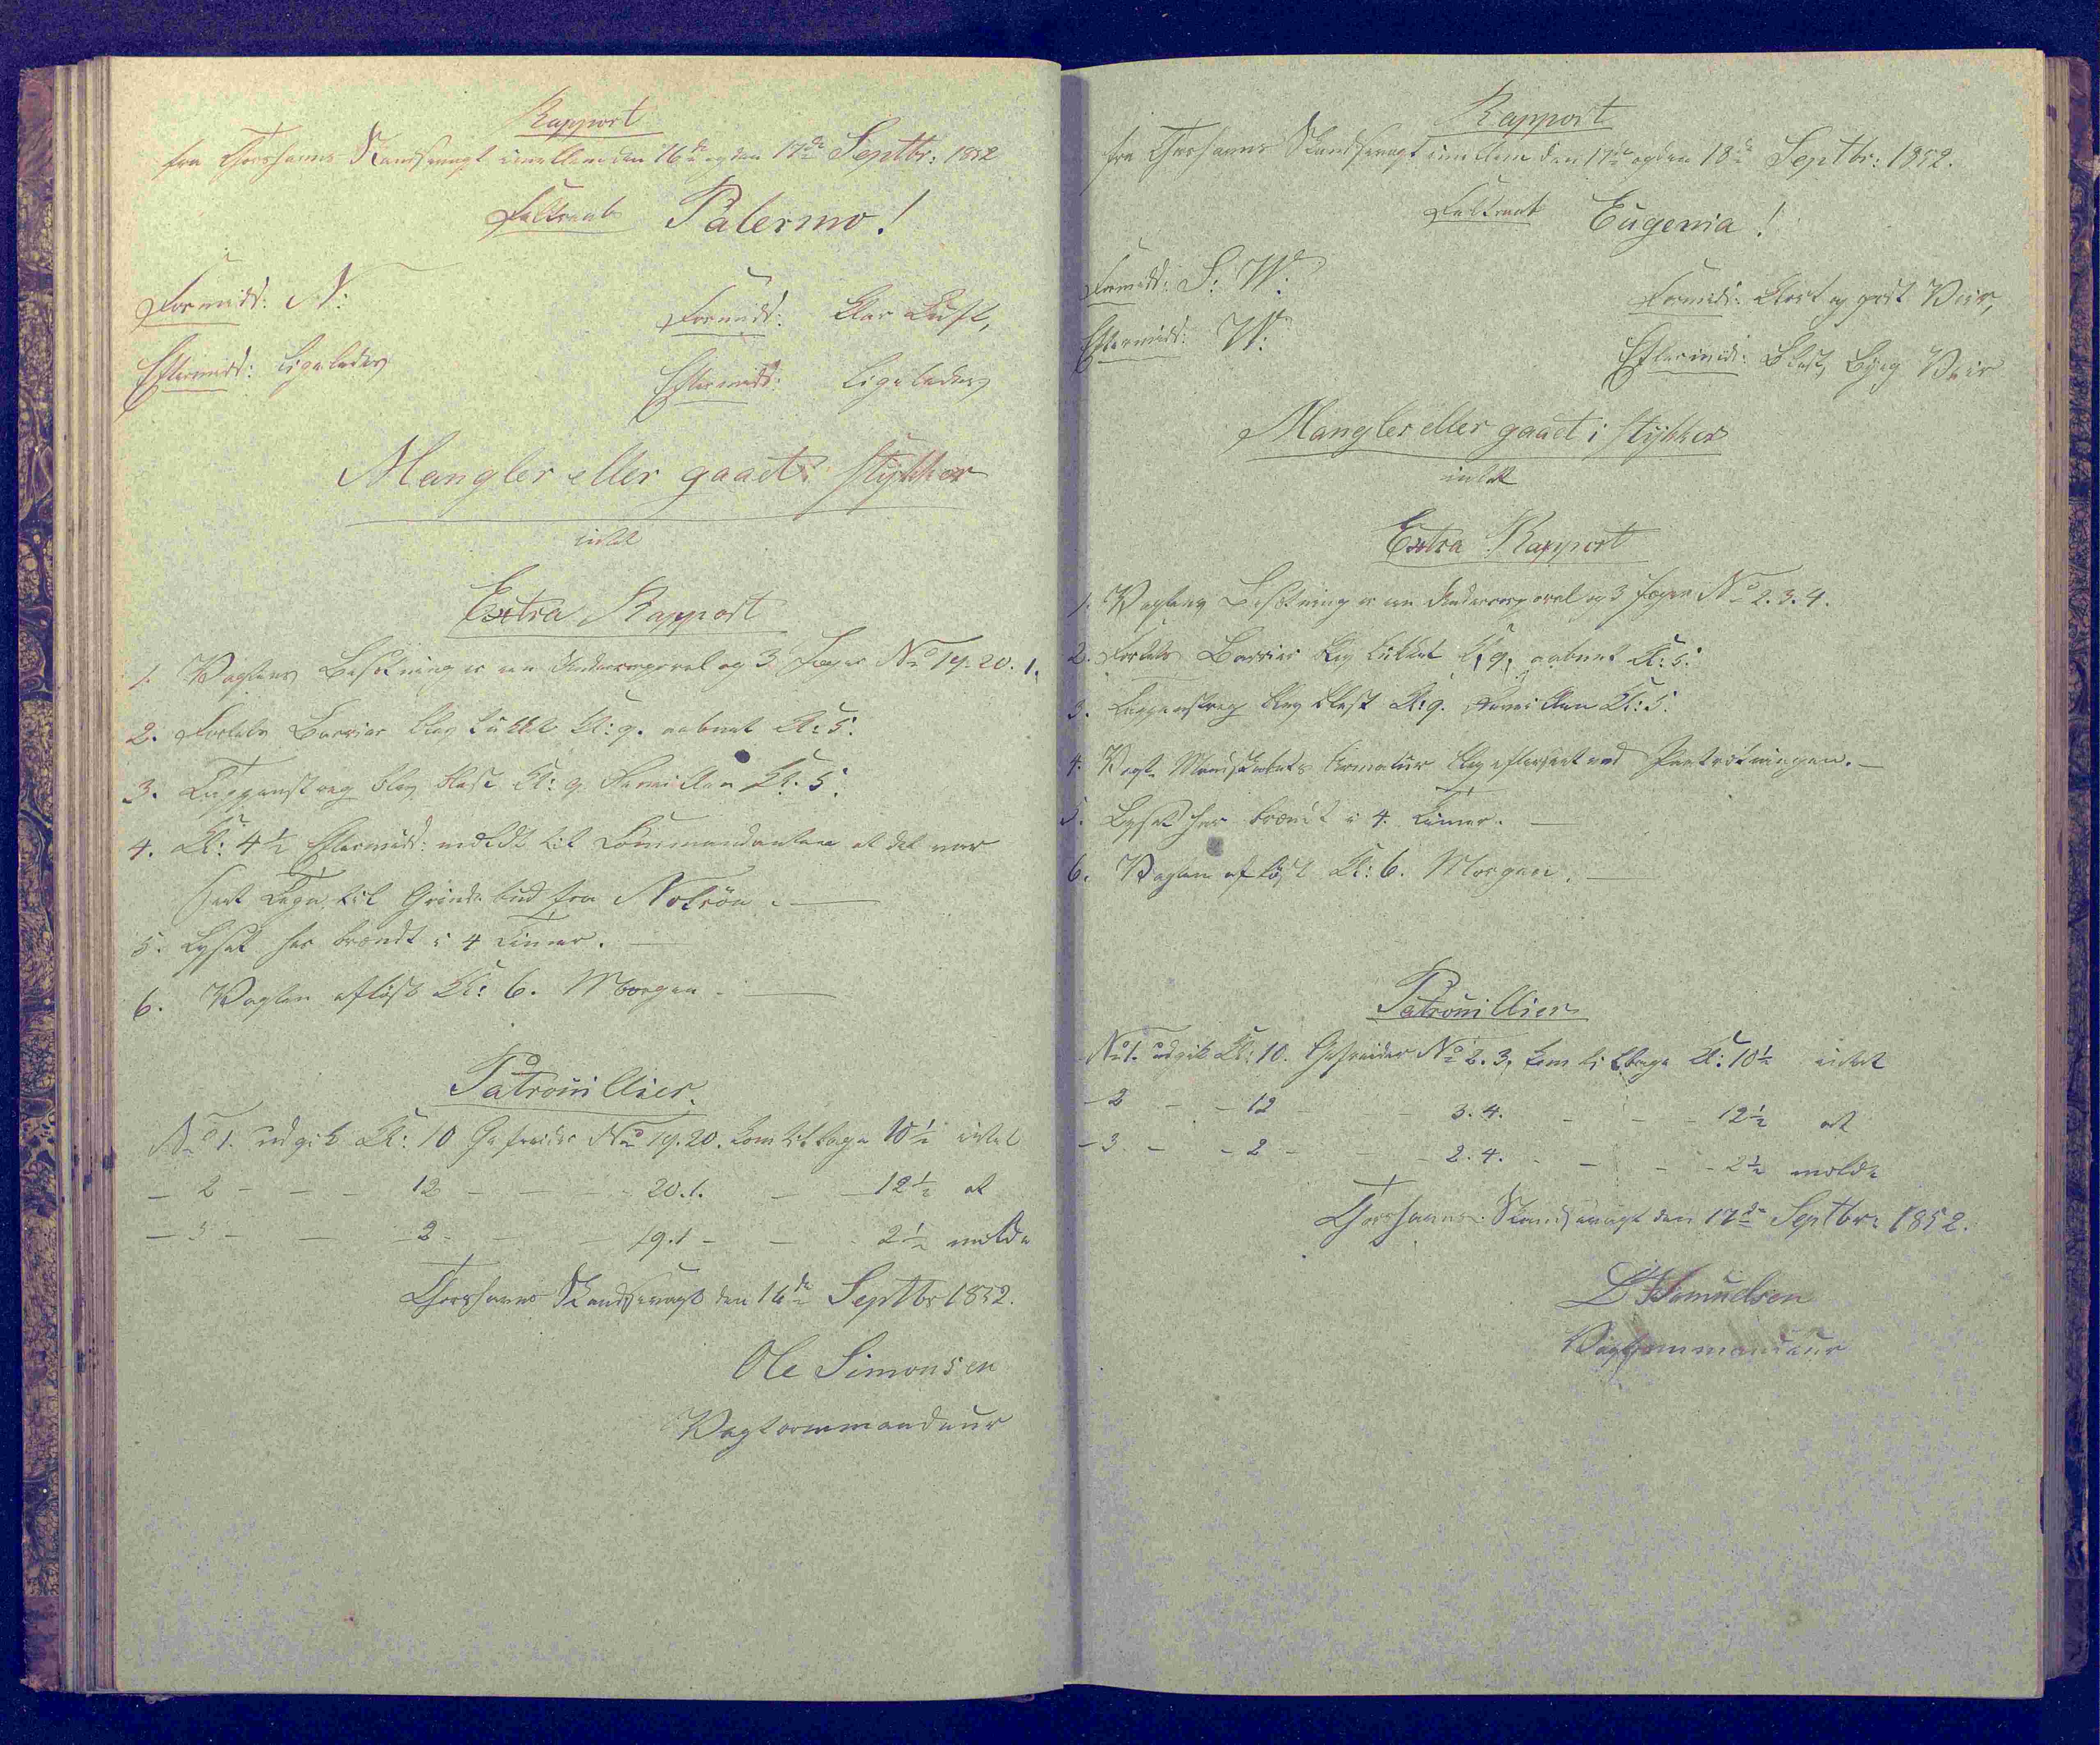 Rapport
fra Thorshavns Skandsevagt imellem den 16de og den 17de Septbr: 1852
Feltraab Palermo!
Formidd: N: Formidd: Klar Luft,
Eftermidd: ligeledes Eftermidd: ligeledes
Mangler eller gaaet i stykker
intet
Extra Rapport
1. Vagtens Besætning er en Undercorporal og 3 Jæger No 19. 20. 1.
2. Fortets Barrier blev lukket Kl: 9. aabnet Kl: 5.
3. Tappenstreg blev blæst Kl: 9. Revillen Kl: 5.
4. Kl: 4½ Eftermidd: meldt til Commandanten at det var
til Grindebud fra Nolsøe.
5. Lyset har brændt i 4 Timer.
6. Vagten afløst Kl: 6. Morgen.
Patrouillier.
No 1. udgik Kl: 10 Gefreider No 19. 20. kom tilbage 10½ intet
– 2 – – – 12 – – – 20. 1. – – 12½ at
– 3 – – 2 – – 19. 1 – – 2½ melde
Thorshavns Skandsevagt den 16de Septbr 1852.
Ole Simonsen
Vagtcommandeur
Rapport
fra Thorshavns Skandsevagt imellem den 17de og den 18de Septbr: 1852.
Feltraab Eugenia!
Formidd: S: W: Formidd: Klart og godt Veir,
Eftermidd: W: Eftermidd: Blæst, Byig Veir
Mangler eller gaaet i stykker
intet
Extra Rapport
1. Vagtens Besætning er en Undercorporal og 3 Jæger No 2. 3. 4.
2. Fortets Barrier blev lukket Kl 9. aabnet Kl: 5.
3. Tappenstreg blev blæst Kl: 9. Revillen Kl: 5.
4. Vagt Mandskabets Armatur blev efterseet ved Paatrædningen.
5. Lyset har brændt i 4 Timer.
6. Vagten afløst Kl: 6. Morgen.
Patrouillier
No 1. udgik Kl: 10. Gefreider No 2. 3. kom tilbage Kl: 10½ intet
– 2 – – 12 – – 3. 4. – – – 12½ at
– 3 – – 2 – – – 2. 4. – – – 2½ melde
Thorshavns Skandsevagt den 17de Septbr: 1852.
Samuelsen
Vagtcommandeur